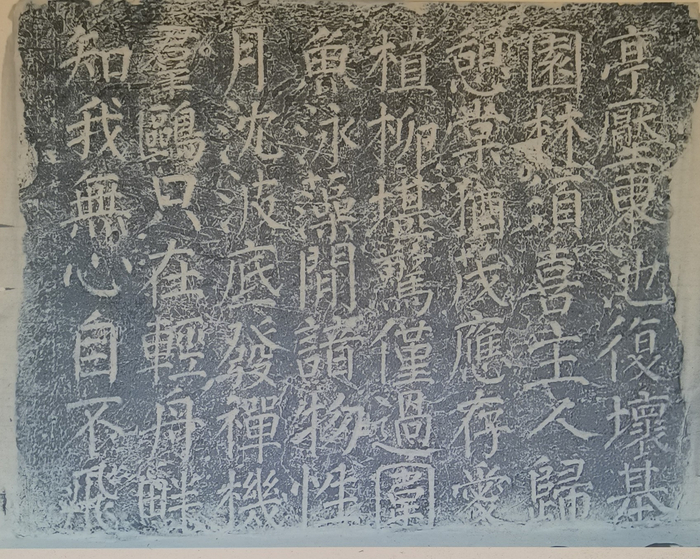 亭壓東池復壞基
園林須喜主人歸
憩棠猶茂應存愛
植柳堪驚僅過圍
魚泳藻閒諳物性
月沈波底發禪機
羣鷗只在輕舟畔
知我無心自不飛